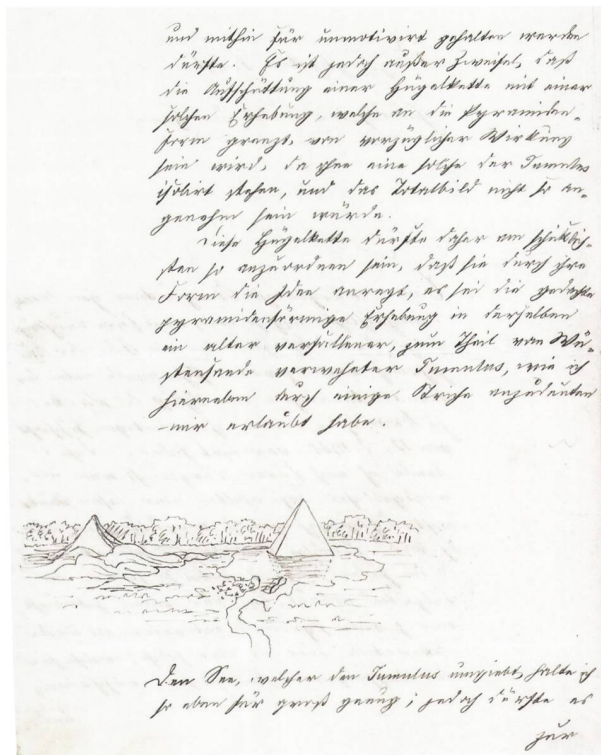 und mithin für unmotivirt gehalten werden
dürfte. Es ist jedoch außer Zweifel, daß
die Aufschüttung einer Hügelkette mit einer
solchen Erhebung, welche an die Pyramiden-
form grenzt, von vorzüglicher Wirkung
sein wird, da ohne eine solche der Tumulus
isolirt stehen, und das Totalbild nicht so an-
genehm sein würde.
Diese Hügelkette dürfte daher am schicklich-
sten so anzuordnen sein, daß sie durch ihre
Form die Idee anregt, es sei die gedachte
pyramidenförmige Erhebung in derselben
ein alter verfallener, zum Theil vom Wü-
stensande verwehter Tumulus, wie ich
hierneben durch einige Striche anzudeuten
mir erlaubt habe.
Den See, welcher den Tumulus umgiebt, halte ich
so eben für groß genug; jedoch dürfte es
zur